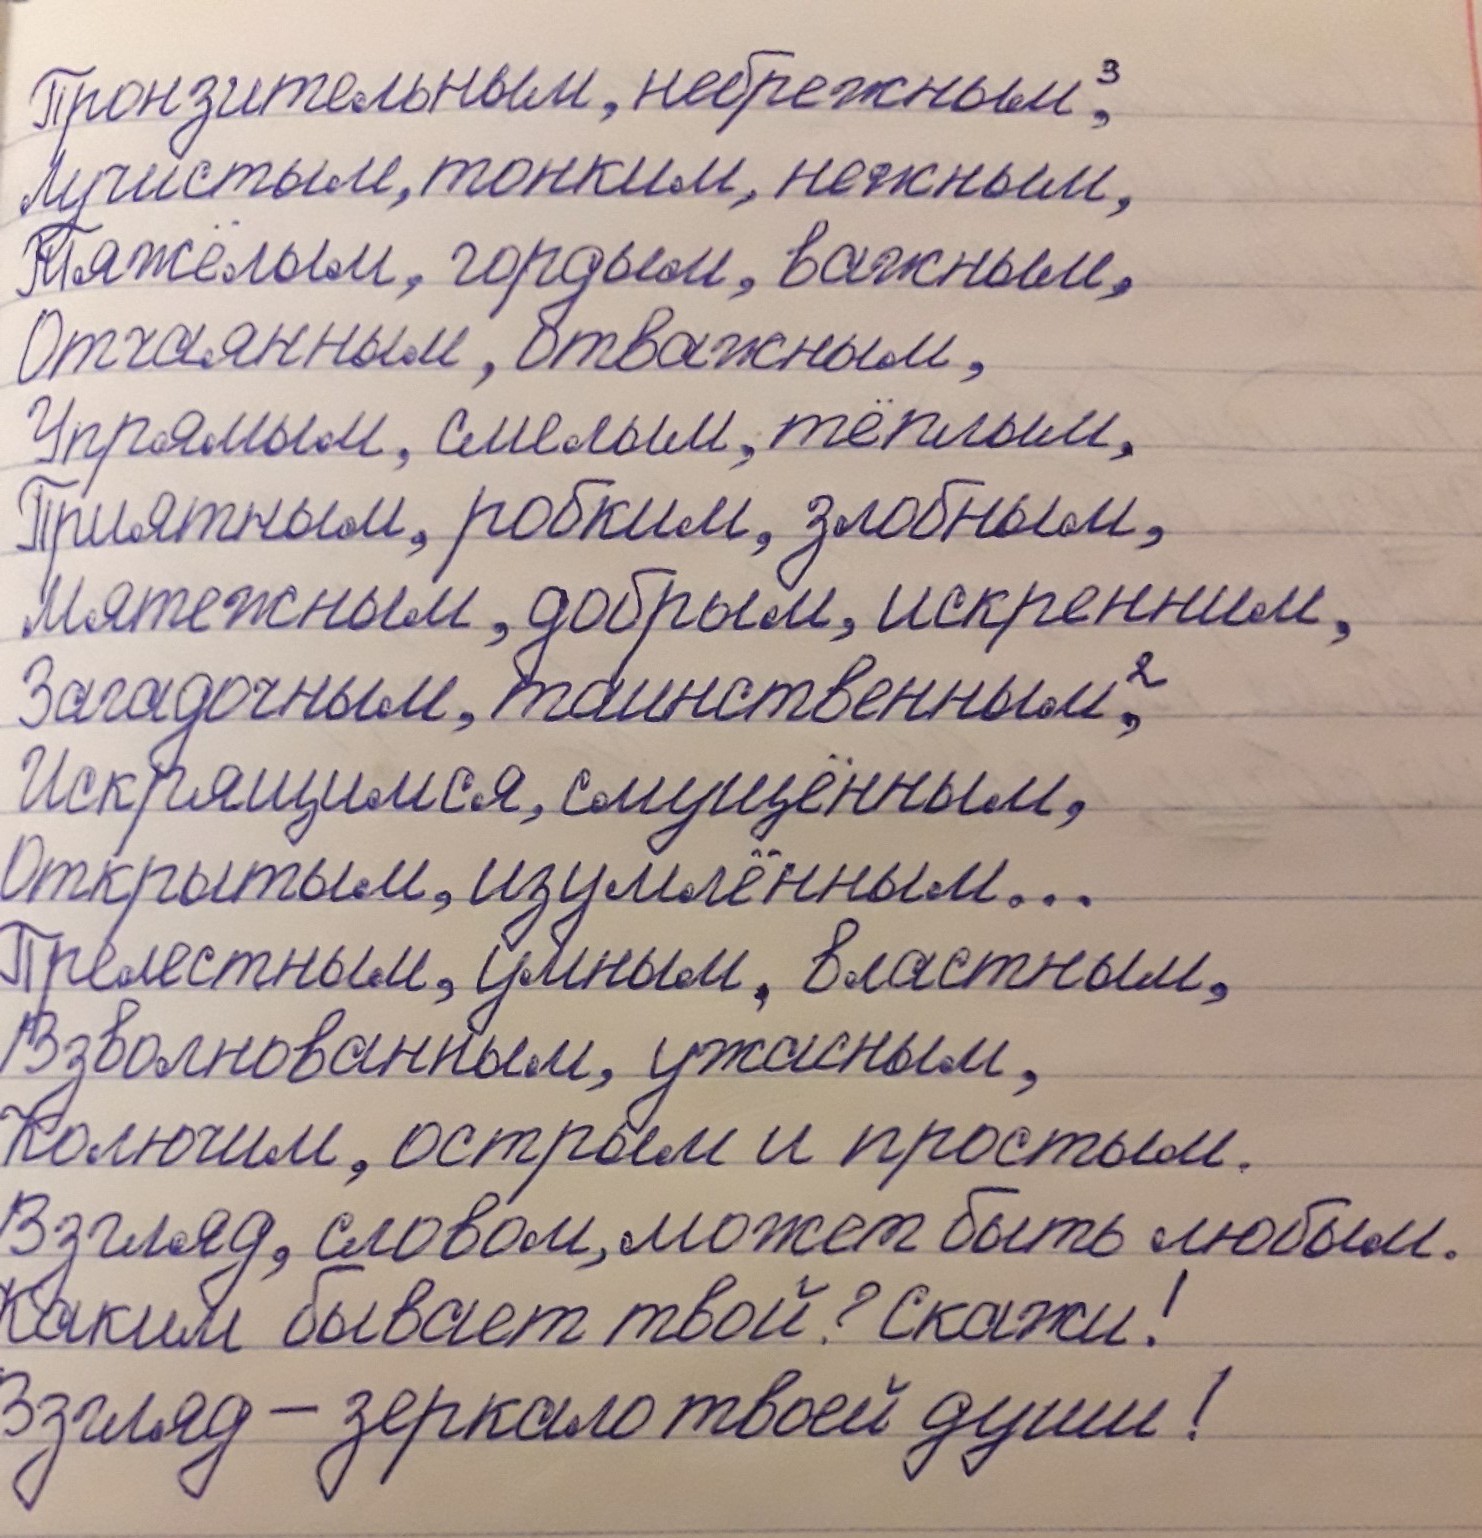 Пронзительным, небрежным,³
Лучистым, тонким, нежным,
Тяжёлым, гордым, важным,
Отчаянным, отважным,
Упрямым, смелым, тёплым,
Приятным, робким, злобным,
Мятежным, добрым, искренним,
Загадочным, таинственным,²
Искрящимся, смущённым,
Открытым, изумлённым...
Прелестным, умным, властным,
Взволнованным, ужасным,
Колючим, острым и простым.
Взгляд, словом, может быть любым.
Каким бывает твой? Скажи!
Взгляд – зеркало твоей души!